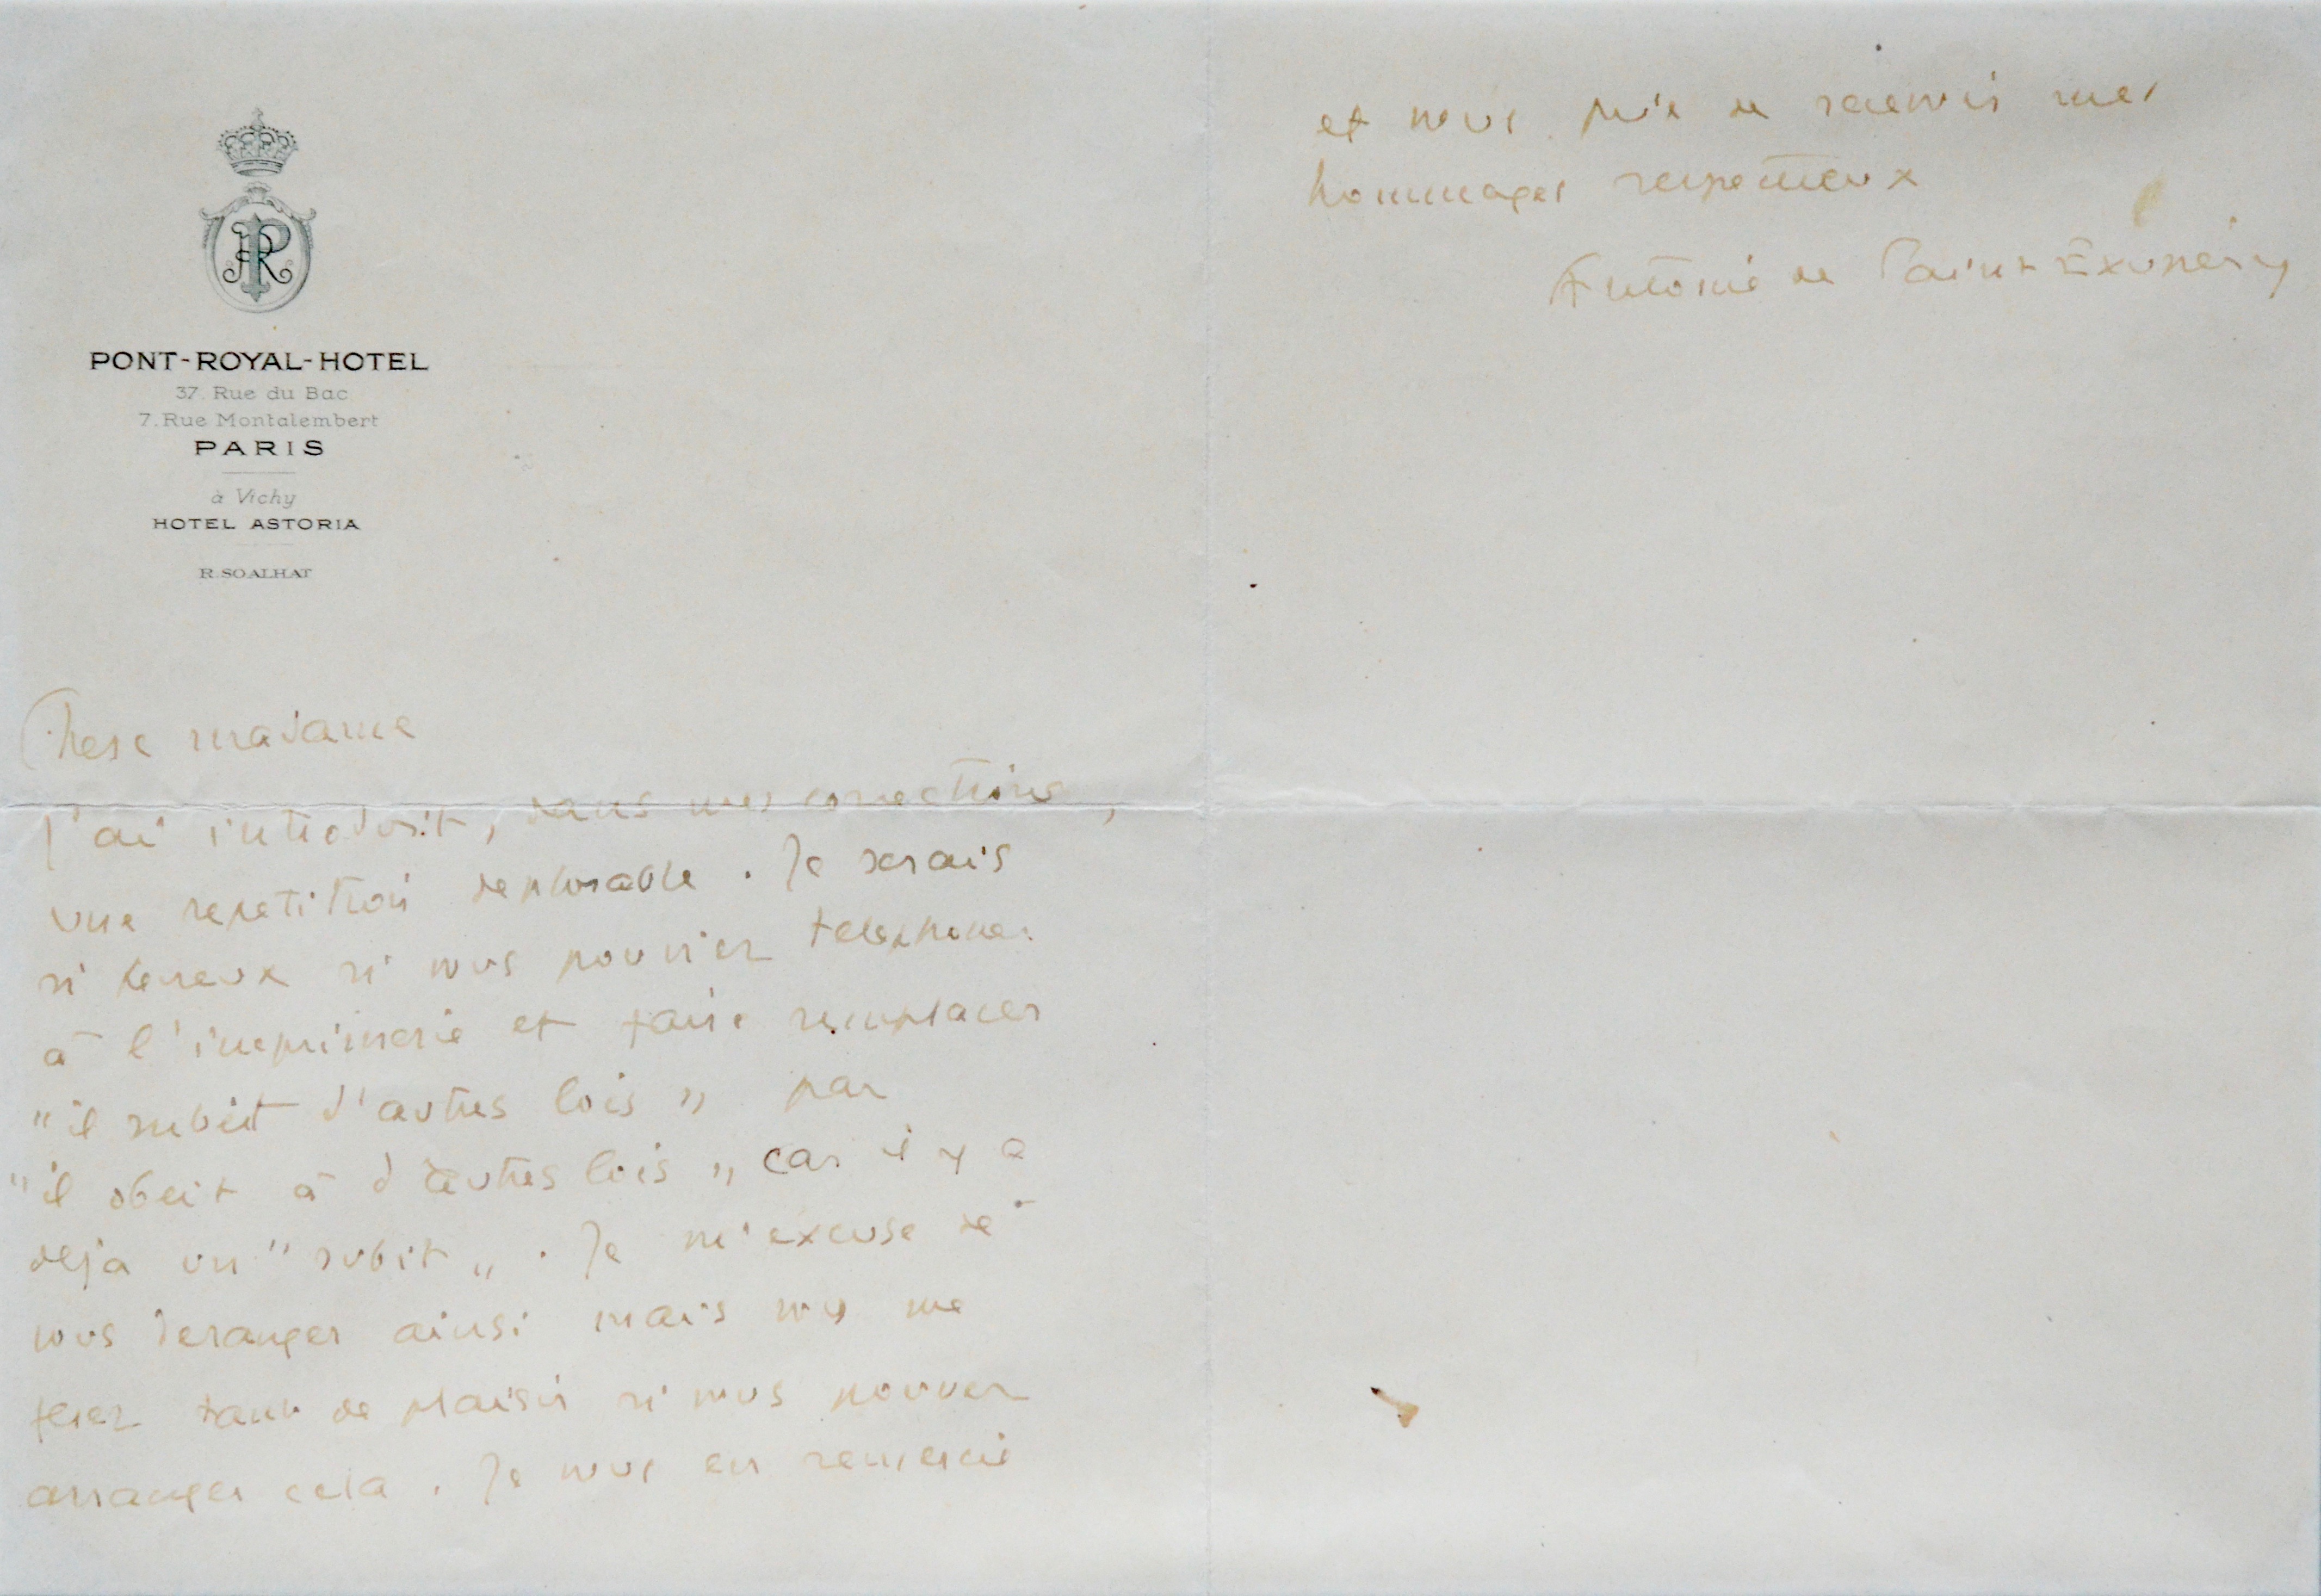 PR
PONT-ROYAL-HOTEL
37. Rue du Bac
7. Rue Montalembert
PARIS
à Vichy
HOTEL ASTORIA
R. SOALHAT
Chere madame
J'ai introduit, dans mes corrections,
une repetition deplorable. Je serais
si hereux si vous pouviez telephoner
à l'imprimerie et faire remplacer
"il subit d'autres lois" par
"il obeit à d'autres lois" car il y a
deja un "subit". Je m'excuse de
vous deranger ainsi mais vous me
ferez tant de plaisir si vous pouvez
arranger cela. Je vous en remercie
et vous prie de recevoir mes
hommages respectueux
Antoine de Saint Exupéry